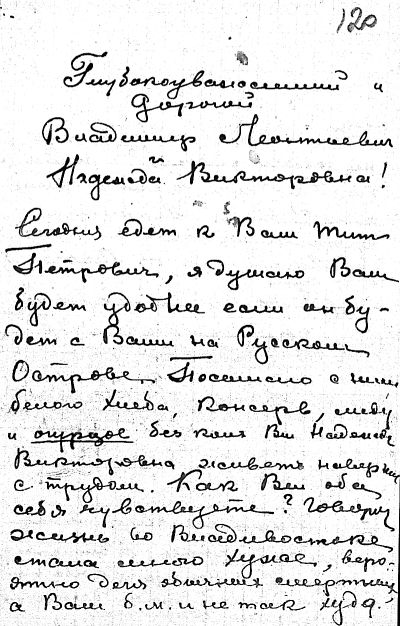 120
Глубокоуважаемый и
дорогой
Владимир Леонтиевич
Надежда Викторовна!
Сегодня едет к Вам Тит
Петрович, я думаю Вам
будет удобнее если он бу-
дет с Вами на Русском
Острове. Посылаю с ним
белого хлеба, консерв, меду
и огурцов без коих Вы Надежда
Викторовна живете наверно
с трудом. Как Вы оба
себя чувствуете? Говорят
жизнь во Владивостоке
стала много хуже, веро-
ятно для обычных смертных
а Вам б.м. и не так худа.